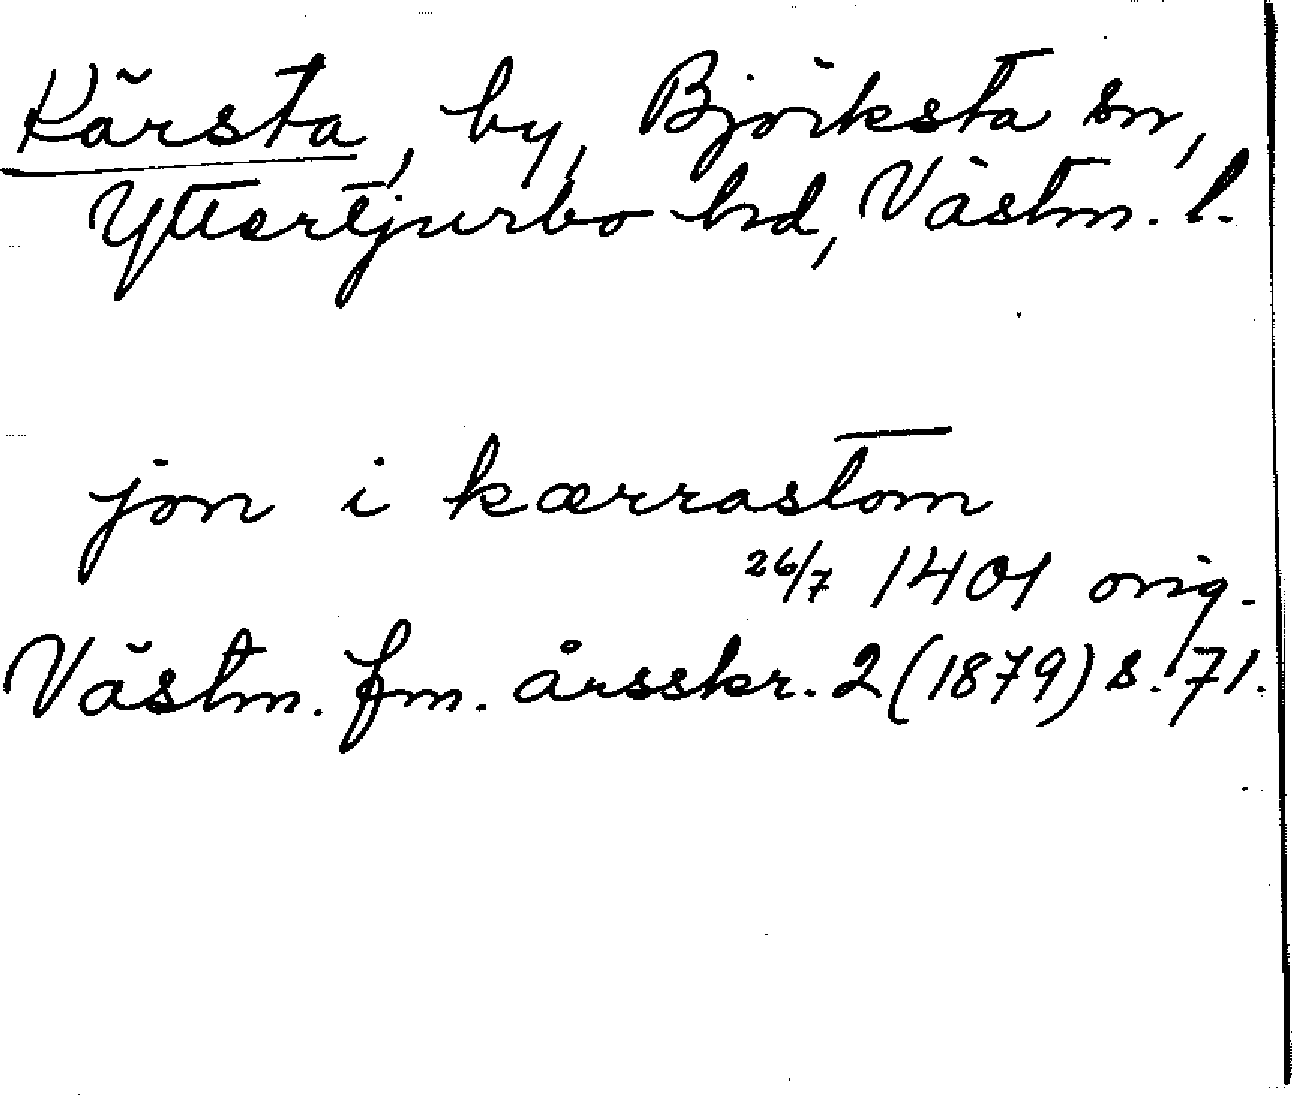 Kärsta, by, Björksta sn,
Yttertjurbo hd, Västm. l.
jon i kærrastom
26/7 1401 orig.
Västm. fm. årsskr. 2 (1879) s. 71.